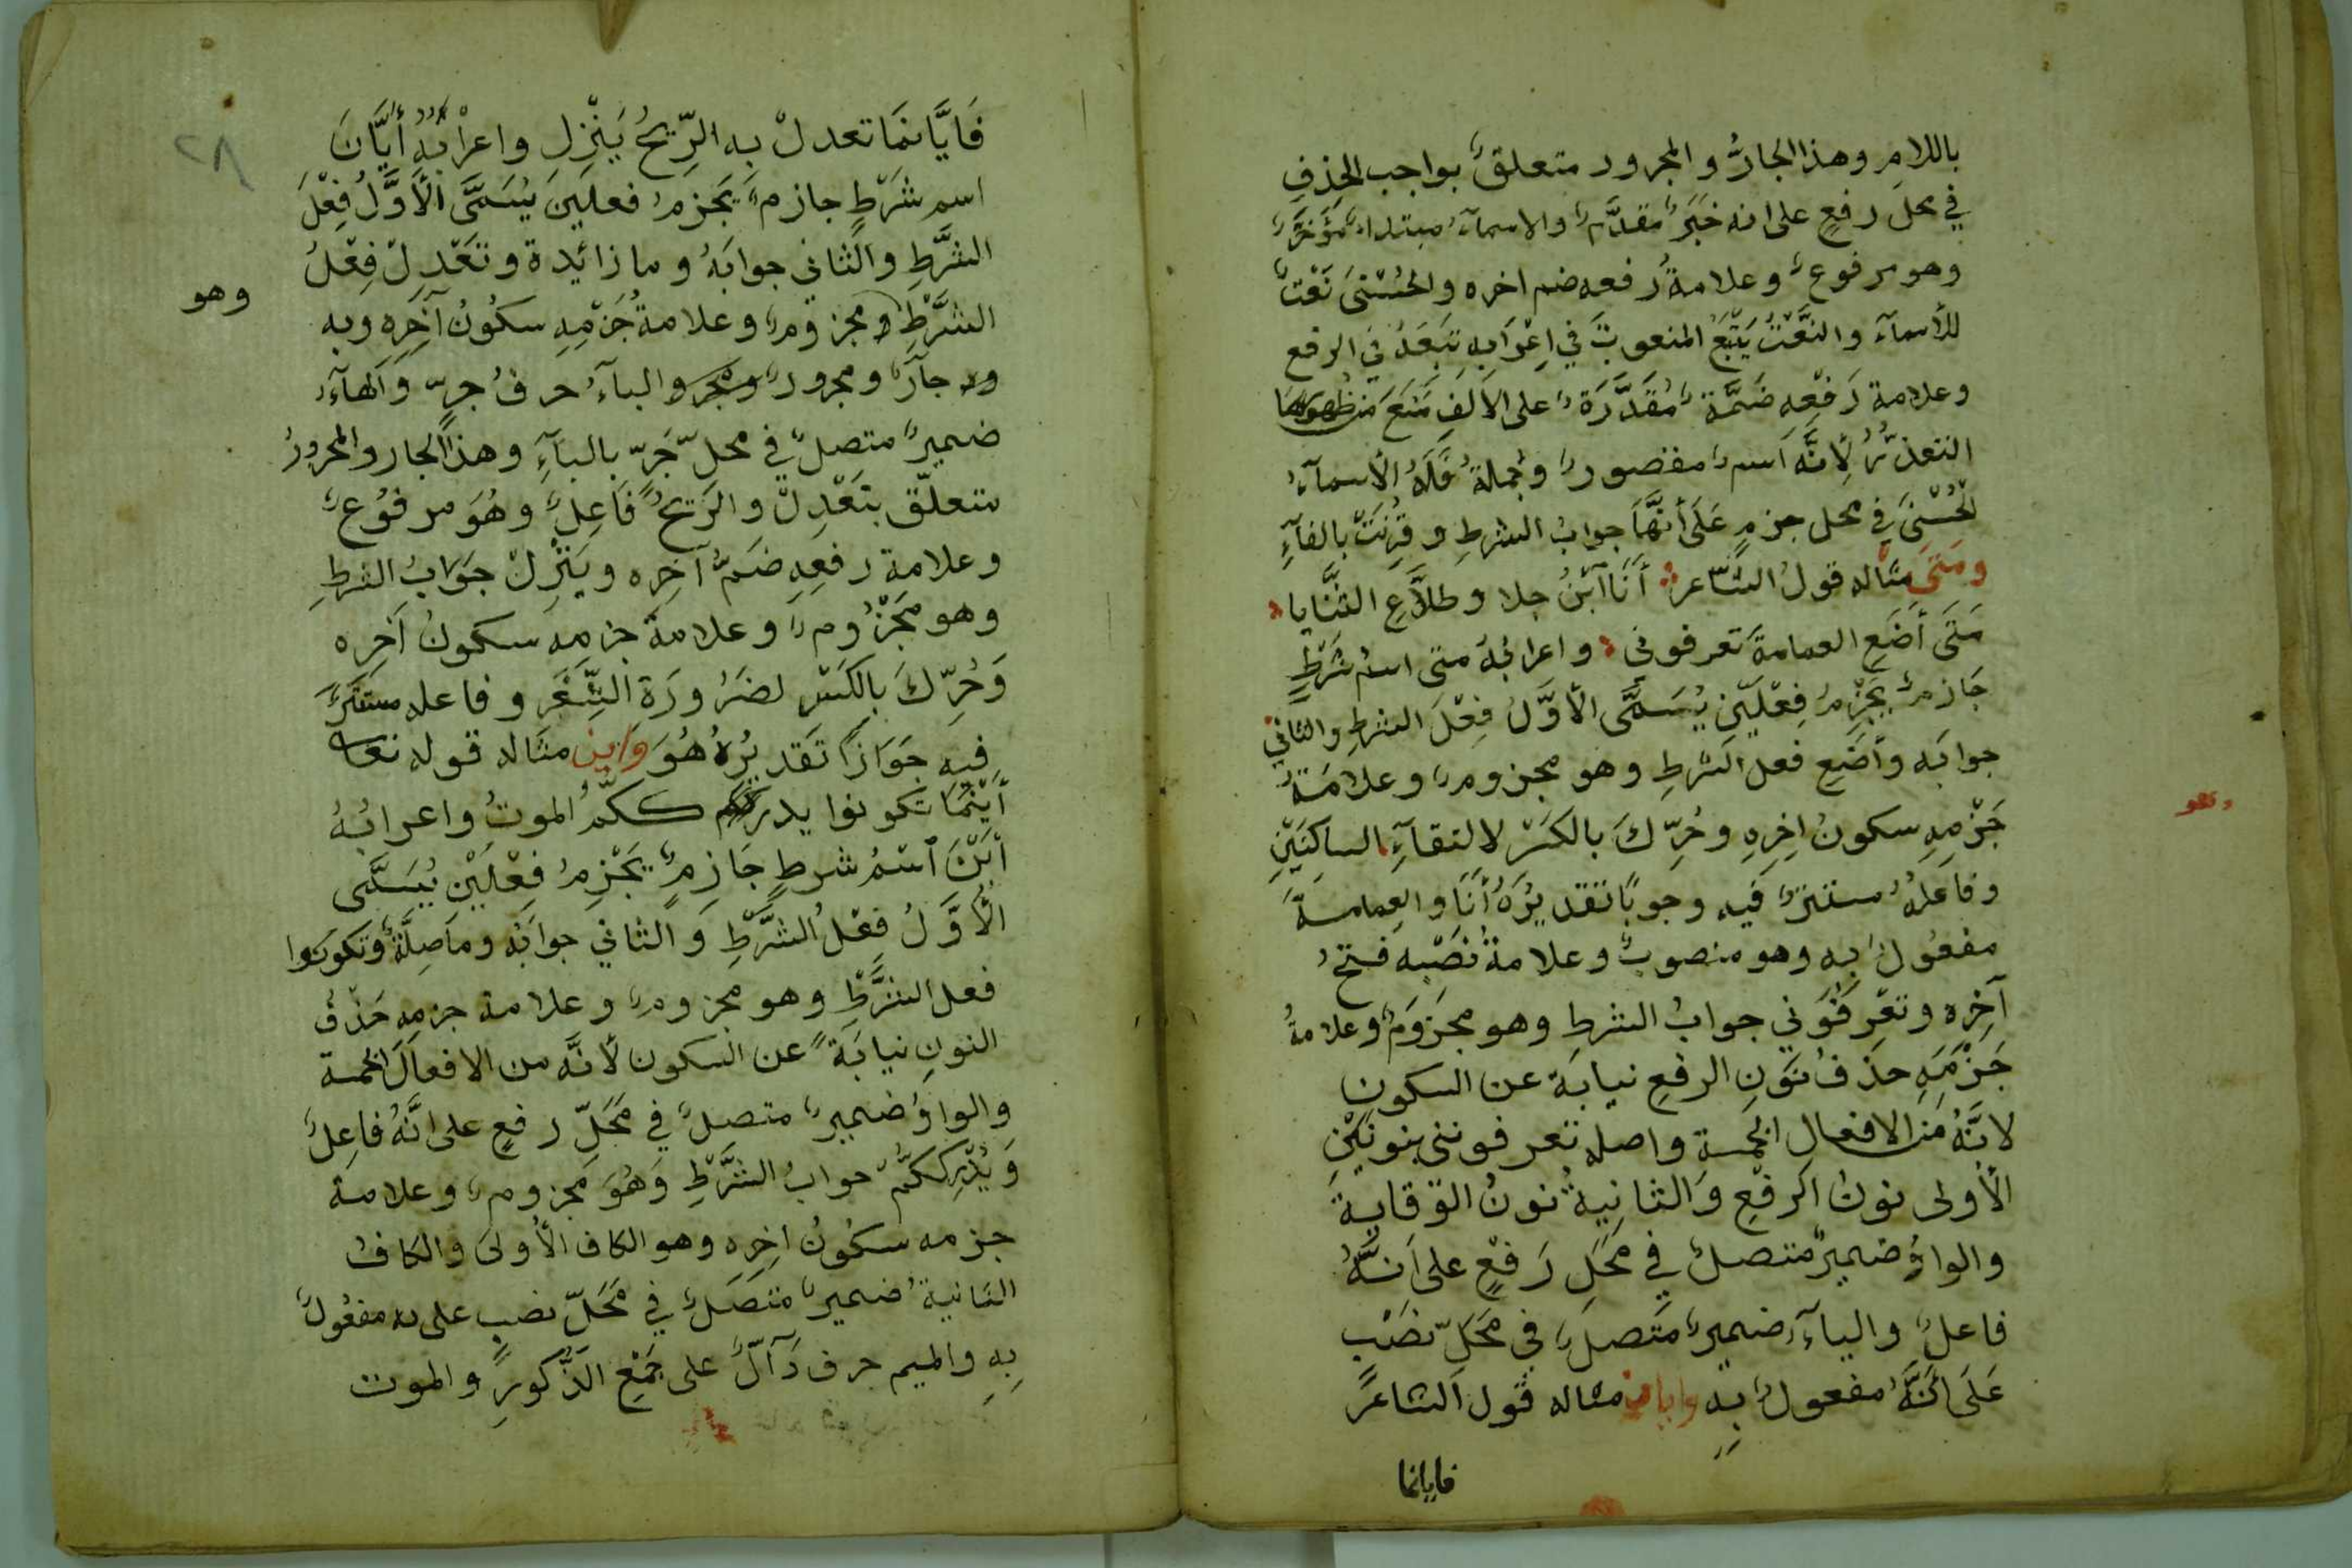 باللامِ وهذا الجارُّ والمجرور متعلقٌ بواجب الحذفِ
في محل رفعٍ على انه خَبَرٌ مقدَّمٌ والاسمآءُ مبتداءٌ مُؤَخَّرٌ
وهو مرفوعٌ وعلامةُ رفعه ضم اخره والحُسْنىَ نَعْتٌ
للأسمآءَ والنَّعْتُ يَتْبَعُ المنعوتَ في اِعْرَابِهِ تَبِعَهُ في الرفع
وعلامة رَفْعِهِ ضَمَّةٌ مُقَدَّرَةٌ على الاَلفِ مَنَعَ من ظهورها
التعذّرُ لِأنَّه اسمٌ مقصورٌ وجُملةُ فَلَهُ الأسمآءُ
الحُسْنىَ في محل جزمٍ عَلَى أنَّهَا جوابُ الشرطِ وقُرِنَتْ بالفآءِ
ومَتىَ مثاله قولُ الشّاعر أَنَا ابْنُ جلا وطلاَّعِ الثَّنَايا
مَتىَ أضَعِ العمامةَ تعرفوني واعرابُهُ متى اسمُ شَرْطٍ
جَازمٌ يَجْزِمُ فِعْلَيْنِ يُسَمَّى الأوَّلُ فِعْلَ الشرطِ والثاني
جوابَه وأضَعِ فعلُ الشرطِ وهو مجزومٌ وعلامَةُ
جَزْمِهِ سكونُ اخِرِهِ وحُرِّكَ بالكَسْرِ لالتقآءِ الساكنَيْنِ
وفاعلُهُ مستترٌ فيه وجوبًا تقديرُهُ أنَا والعِمامةَ
مفعُولٌ به وهو منصوبٌ وعلامةُ نَصْبِه فتحُ
آخِرِه وتعْرِفُوني جوابُ الشرطِ وهو مجزومٌ وعلامةُ
جَزْمِهِ حذفُ نُونِ الرفعِ نيابَة عن السكون
لانَّهُ من الافعال الخمسةِ واصله تعرفونني بنونَيْنِ
الأولى نونُ الرفعِ وَالثانِيةُ نونُ الوقايةَ
والواوُ ضميرٌ متصلٌ في مَحَلِ رَفعٍ على اَنَّهُ
فاعلٌ والياءُ ضميرٌ متصلٌ في مَحَلِّ نصْبٍ
عَلَى أنَّهُ مفعولٌ بِهِ وايان مثاله قول الشاعر
فايانما
وهو
٢٨
فَايَّانمَا تعدلْ به الرِّيحُ يَنْزِلِ واعرْابُهُ أيَّانَ
اسم شَرْطٍ جازمٌ يَجزمُ فعلينِ يُسَمَّى الأوَّلُ فِعْلَ
الشَّرطِ والثاني جوابَهُ وما زائدة وتَعْدِلْ فِعْلُ
الشَّرْطِ ومجزومٌ وعلامةُ جَزْمِهِ سكُونُ آخِرِه وبه
وهو
جآرٌّ ومجرورٌ والبآءُ حرفُ جرّ وَالهآءُ
ضميرٌ متصلٌ في محلّ جَرّ بالبآءِ وهذا الجار والمجرورُ
متعلّق بتَعْدِلْ والرِّيحُ فَاعِلٌ وهُوَ مرفُوعٌ
وعلامة رفعِهِ ضَمُّ آخِرِه ويَنْزِلْ جَوَابُ الشرطِ
وهو مَجْزُومٌ وعلامة جزمِه سكونُ آخِرِه
وَحُرِّكَ بالكَسْرِ لضَرُورَةِ الشِّعْرِ وفاعله مستترٌ
فيه جَوَازًا تَقديرُهُ هُوَ وَاين مثاله قوله تعا
أَيْنَمَا تكونوا يدرككمُ الموتُ واعرابُهُ
أَيْنَ اسْمُ شرطٍ جَازِمٌ يَجْزِمُ فِعْلَيْنِ يُسَمَّى
الأوَّلُ فِعْلُ الشَّرْطِ وَالثاني جوابُه وما صِلَةٌ وتكونوا
فعل الشَّرْطِ وهو مجزومٌ وعلامة جزمِه حَذْفُ
النونِ نيابَةً عن السكون لأنَّه من الافعال الخمسة
والواوُ ضميرٌ متصلٌ في مَحَلّ رفعٍ على انَّهُ فاعِلٌ
وَيُدْرِكْكُمُ جوابُ الشَّرْطِ وَهُوَ مَجزومٌ وعلامة
جزمه سكُونُ اخِرِه وهو الكاف الأُولىَ والكافُ
الثانيةُ ضميرٌ متصلٌ في مَحَلّ نصبٍ على انه مفعُولٌ
بِهِ والميم حرف دَآلٌّ على جَمْعِ الذُّكورِ والموت